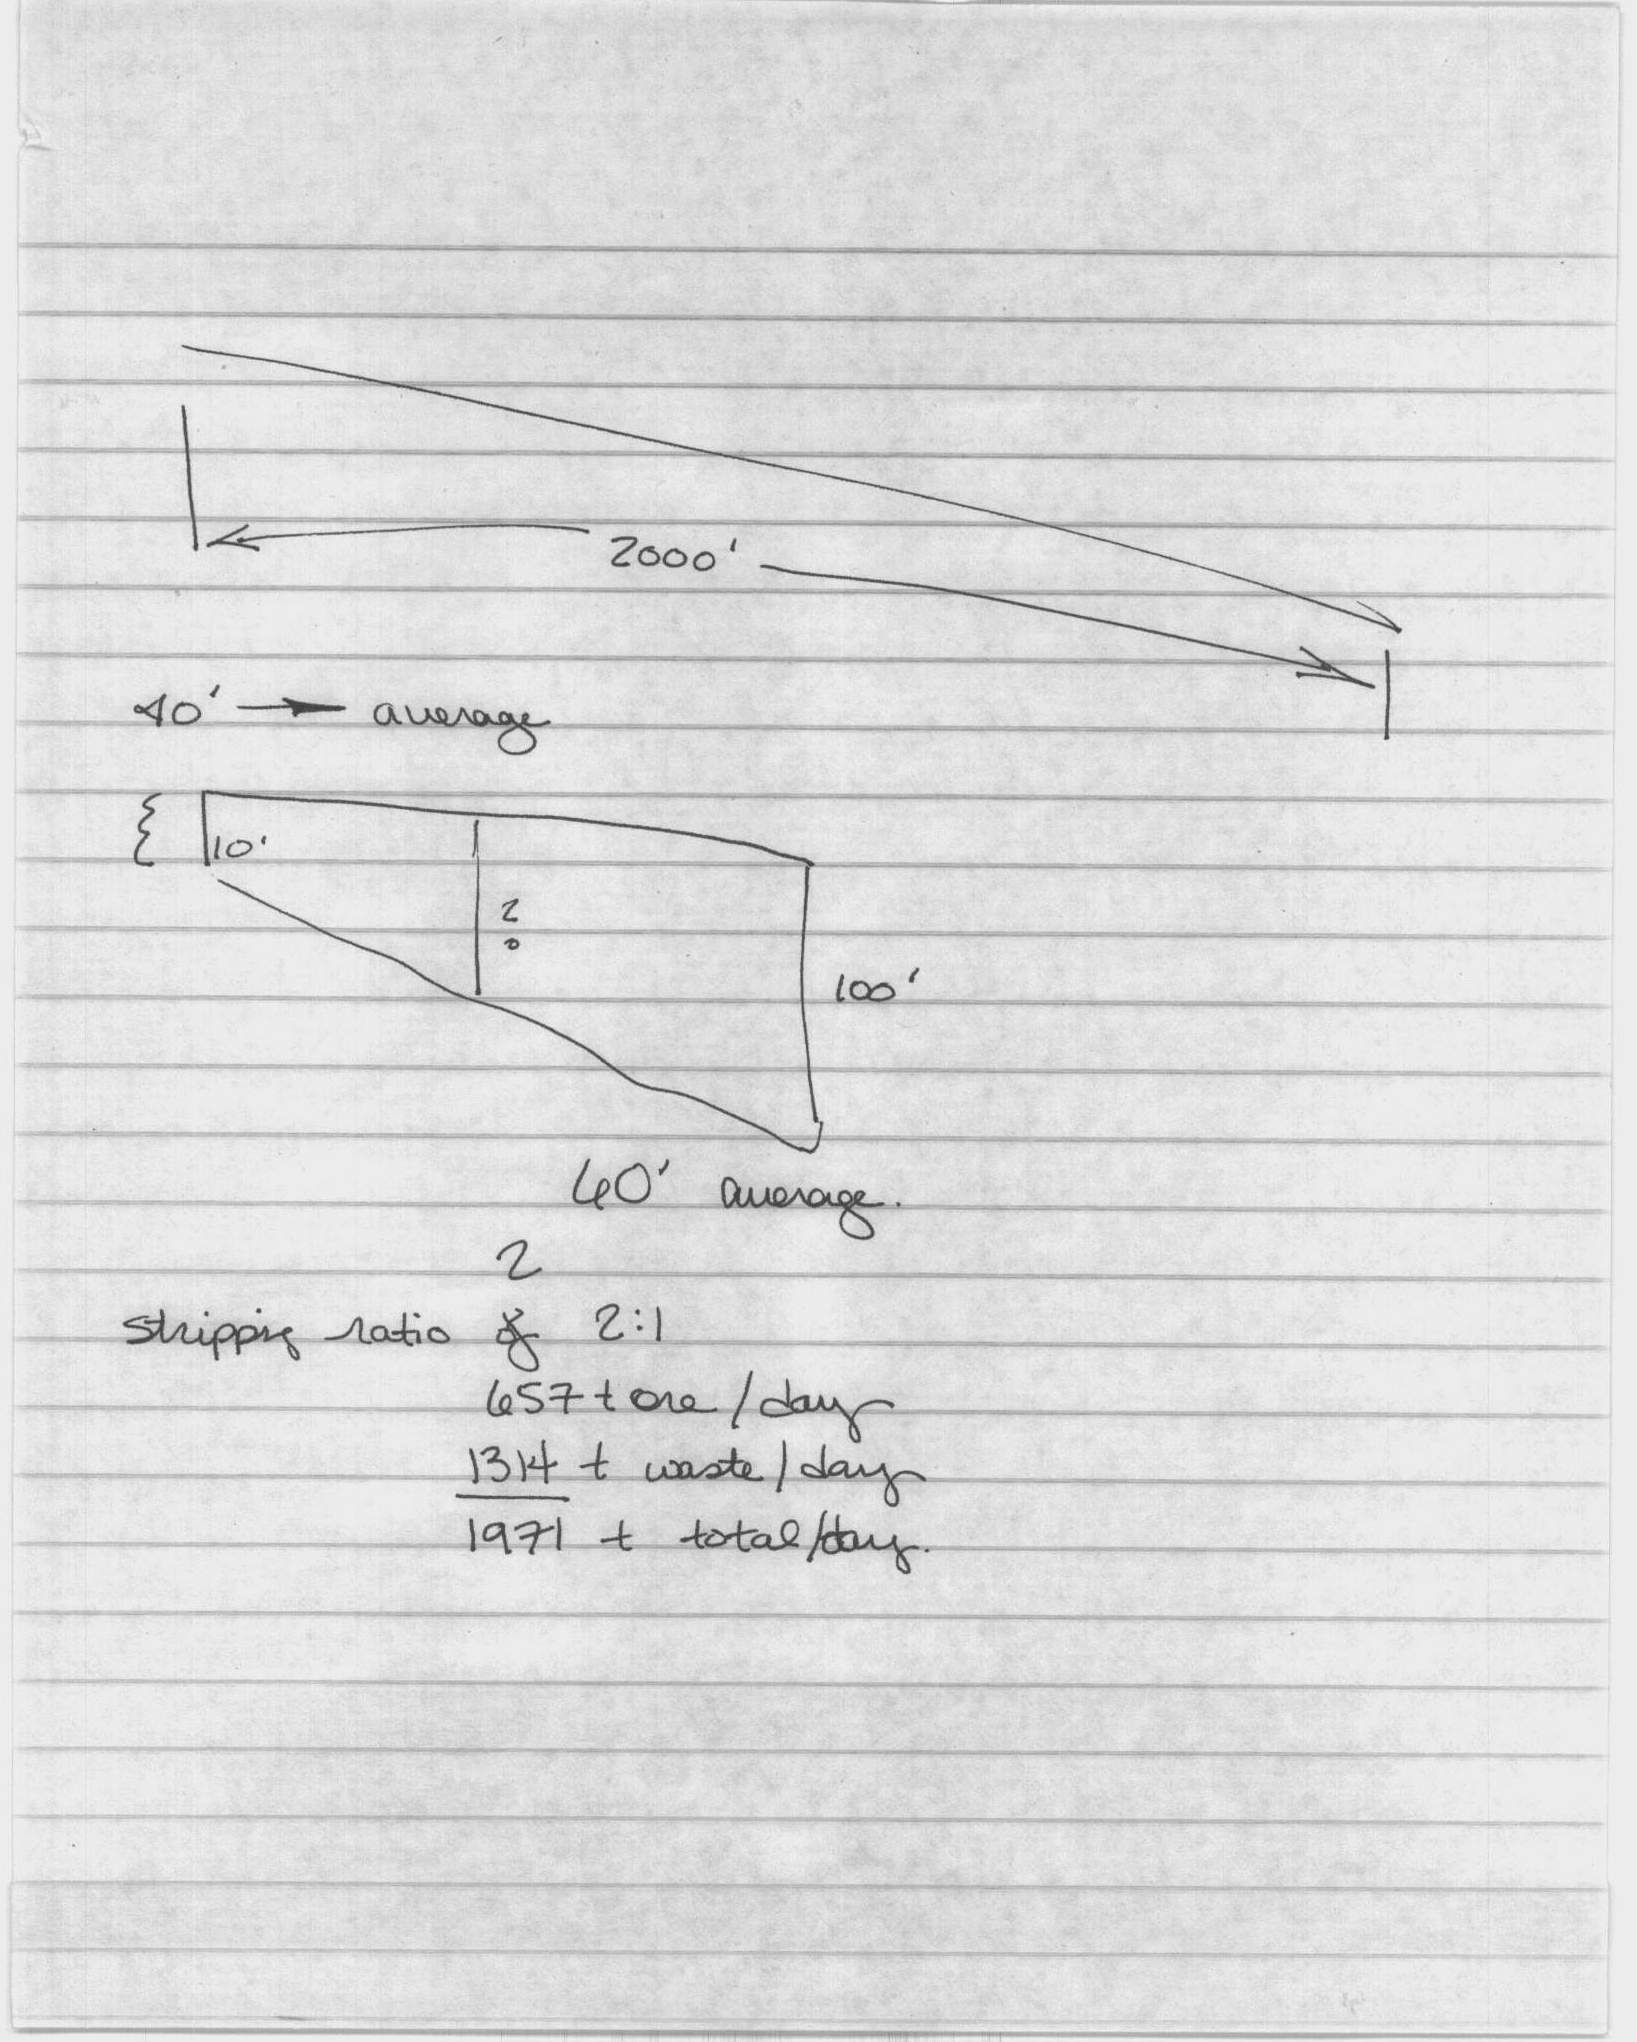 2000'
40' → average
10'
?
100'
60' average.
2
stripping ratio of 2:1
657 t ore / day
1314 t waste / day
1971 t total/day.